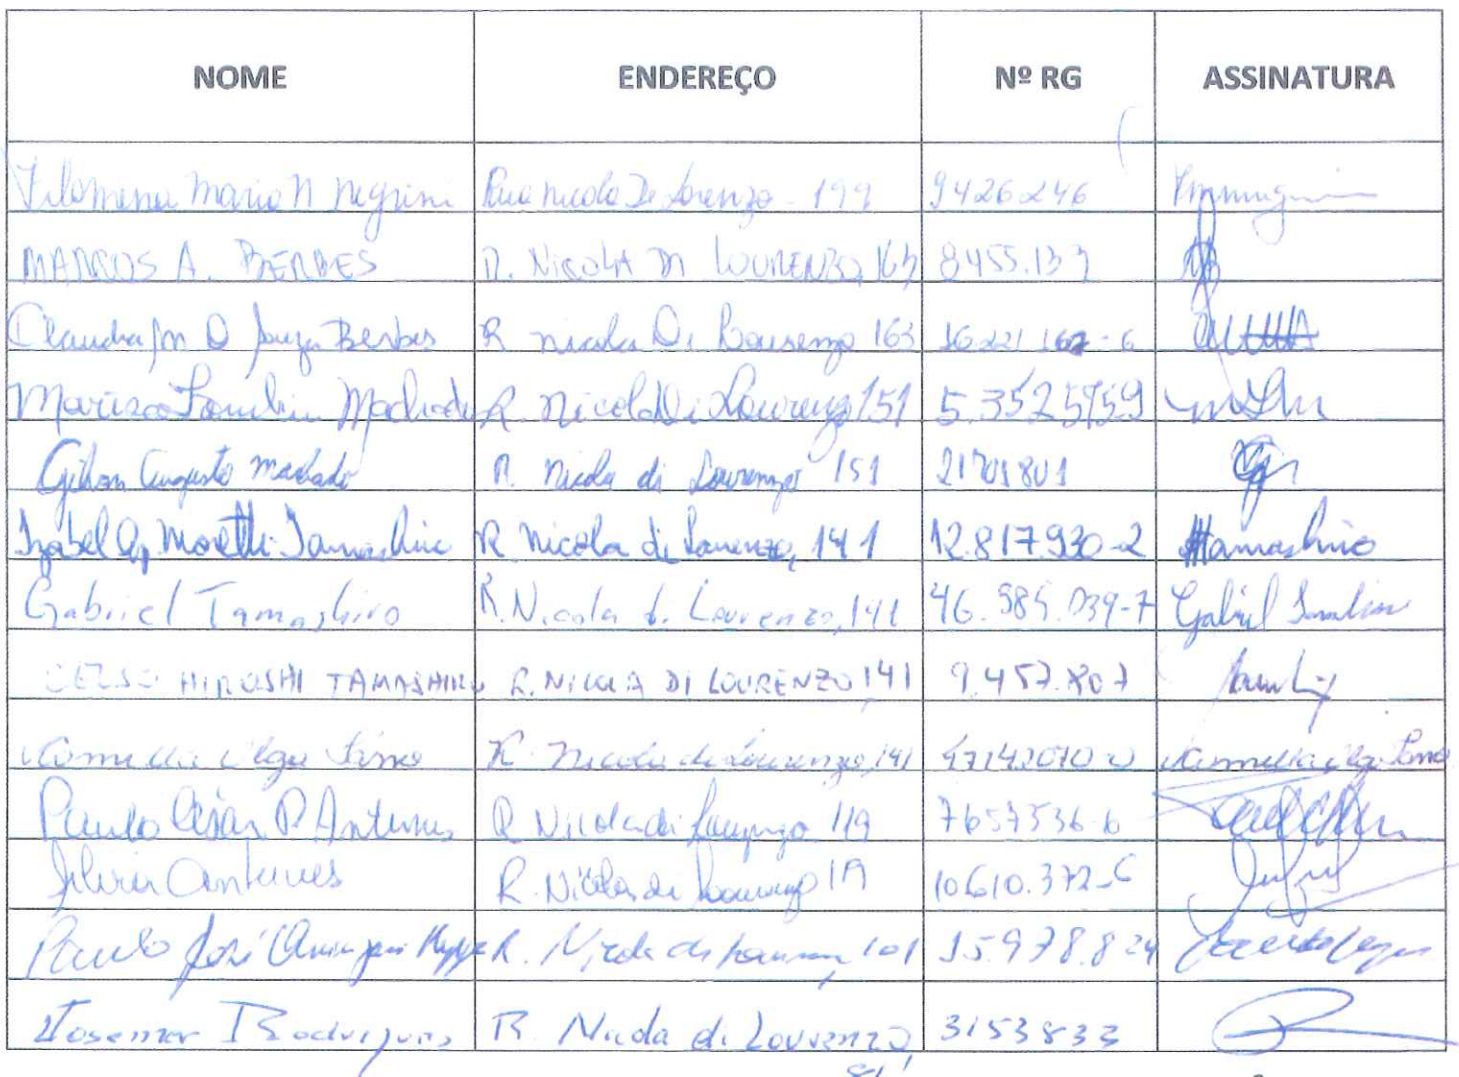 NOME ENDEREÇO Nº RG ASSINATURA
Filomena Maria N Negrini Rua Nicola Di Lorenzo - 199 9426246
MARCOS A. BERBES R. NICOLA DI LOURENZO, 163 8455.139
Claudia M D Souza Berbes R Nicola Di Lourenzo 163 16221167-6
Mariza Machado R. Nicola Di Lourenzo 151 5.3525959
Gilson Augusto Machado R. Nicola di Lourenzo 151 21701801
Izabel Ap Moretti Tamashiro R Nicola di Lourenzo, 141 12.817.930-2 Tamashiro
Gabriel Tamashiro R. Nicola di Lourenzo, 141 46.985.039-7 Gabriel
CELSO HIROSHI TAMASHIRO R. NICOLA DI LOURENZO 141 9.457.807
R. Nicola di Lourenzo, 141 47142070-0
Paulo César P Antunes R Nicola di Lourenzo 119 7657536-6
Silvia Antunes R. Nicola di Lourenzo 119 10.610.372-6
Paulo José R. Nicola di Lourenzo, 101 15.978.824
Josemar Rodrigues R. Nicola di Lourenzo, 3153833
81